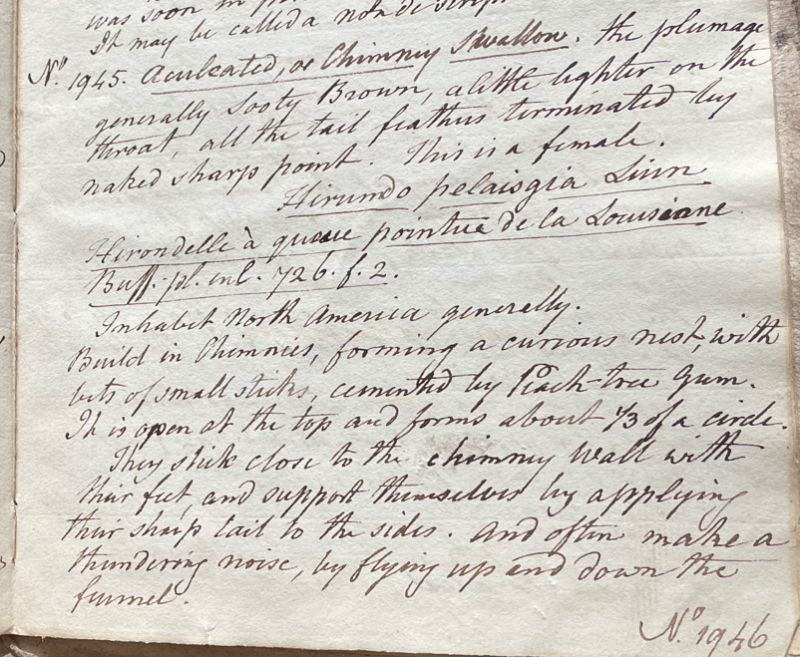 was soon in
It may be called a non descript
No. 1945. Aculeated, or Chimney Swallow. the plumage
generally Sooty Brown, a little lighter on the
throat, all the tail feathers terminated by
naked sharp point. This is a female.
Hirundo pelaisgia Linn
Hirondelle à queue pointue de la Louisiane
Buff. pl. enl. 726. f. 2.
Inhabit North America generally.
Build in Chimnies, forming a curious nest, with
bits of small sticks, cemented by Peach-tree Gum.
It is open at the top and forms about 1/3 of a circle.
They stick close to the chimney Wall with
their feet, and support themselves by applying
their sharp tail to the sides. And often make a
thundering noise, by flying up and down the
funnel.
No. 1946